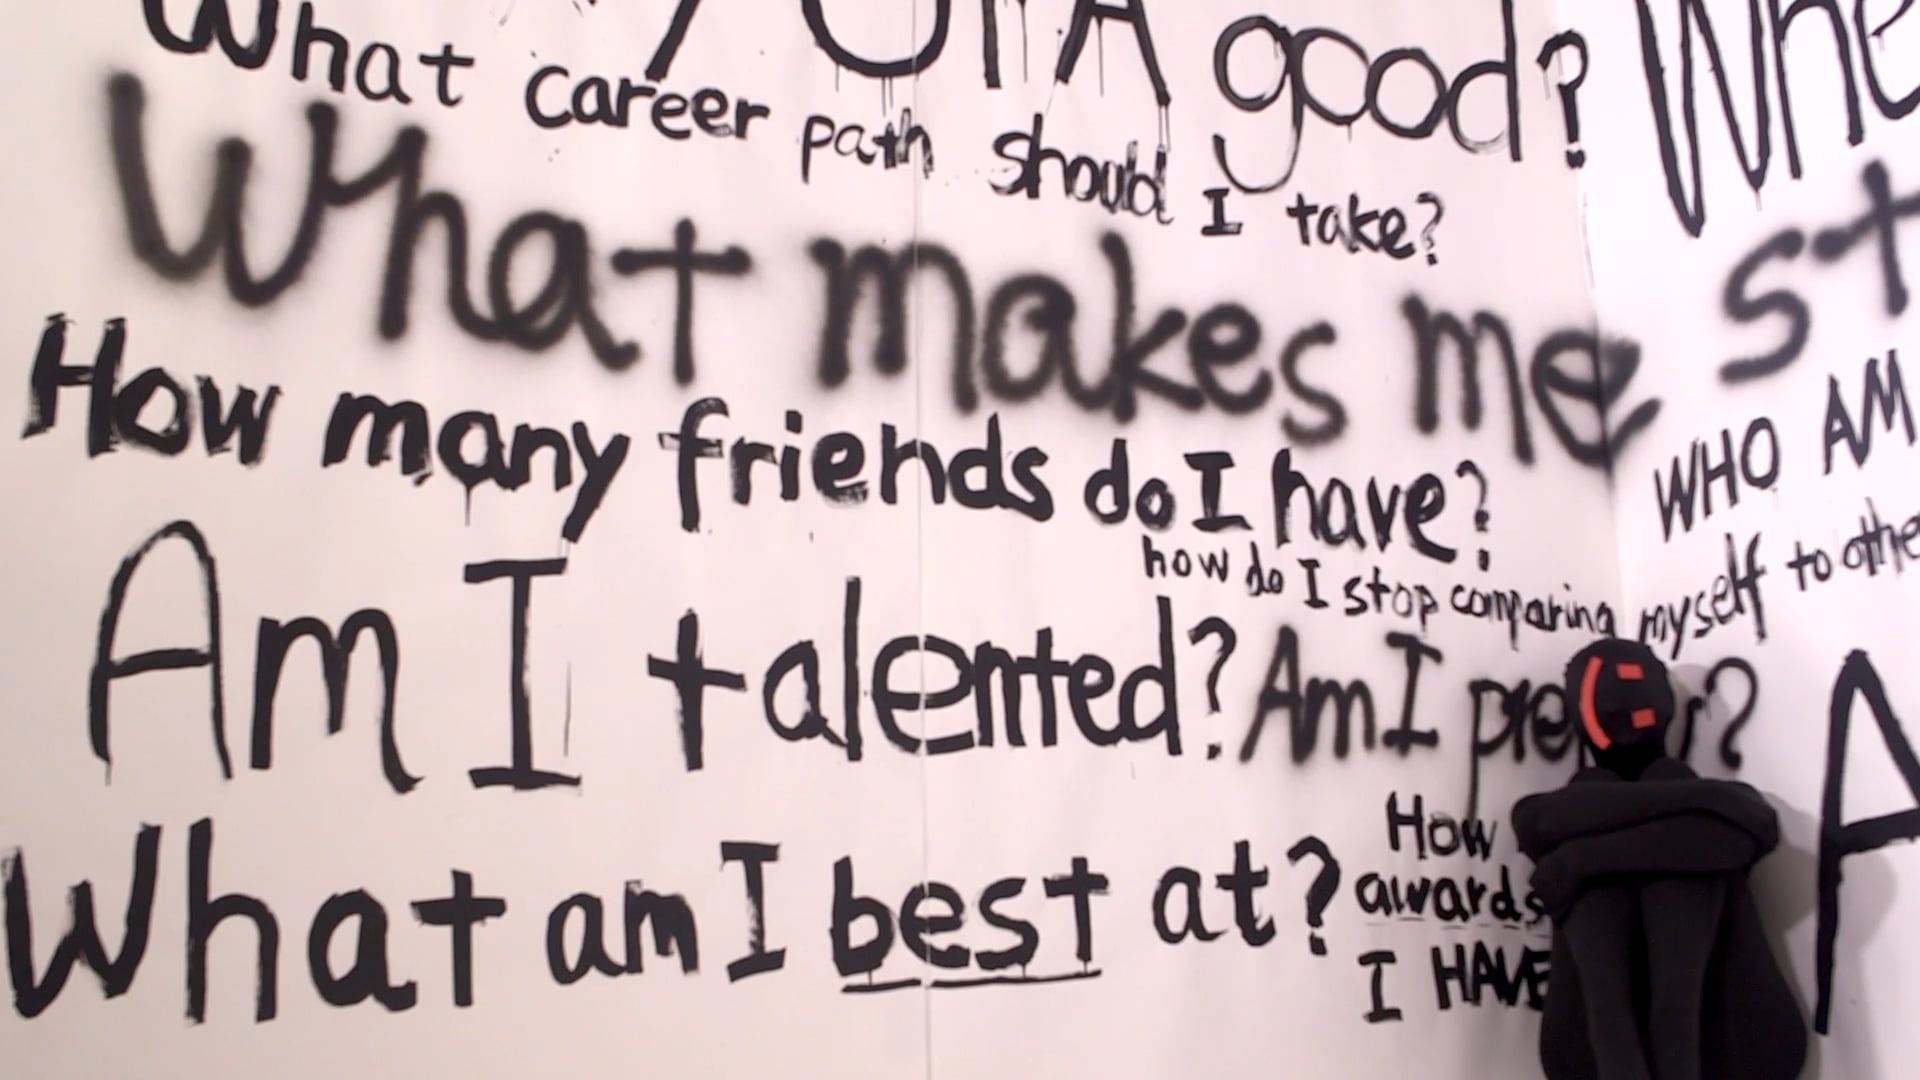 GPA good?
What career path should I take?
What makes me st
How many friends do I have?
WHO AM
how do I stop comparing myself to othe
Am I talented?
Am I pre
?
What am I best at?
How
awards
I HAVE